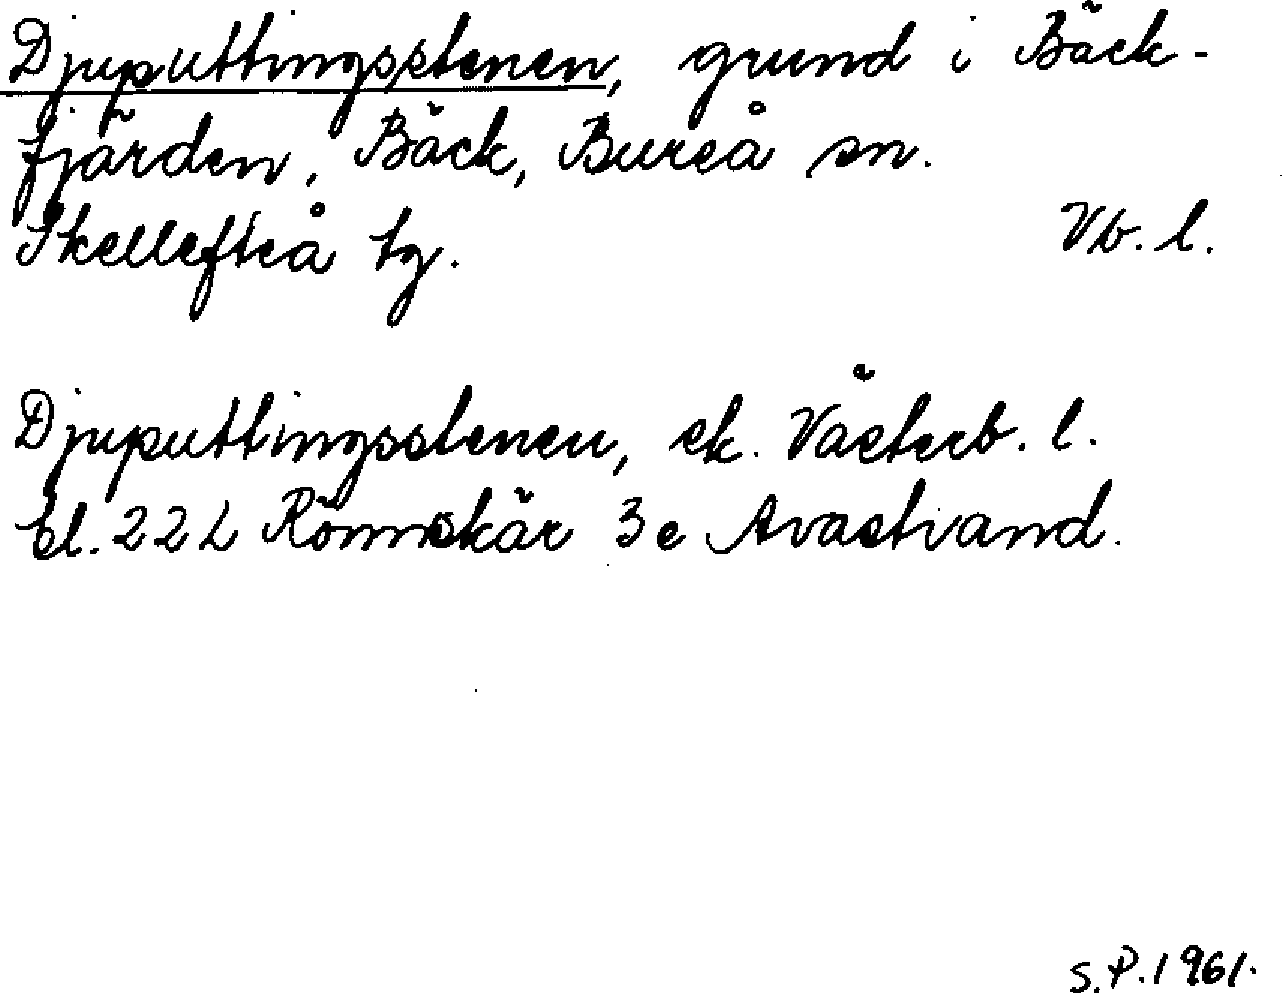 Djuputtingsstenen, grund i Bäck-
fjärden, Bäck, Bureå sn.
Skellefteå tg. Vb. l.
Djuputtingsstenen, ek. Västerb. l.
bl. 22 L Rönnskär 3e Avastrand.
S.P. 1961.